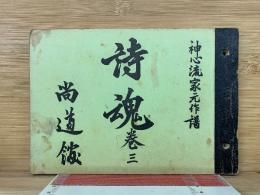 神心流家元作譜
詩魂 巻三
尚道館